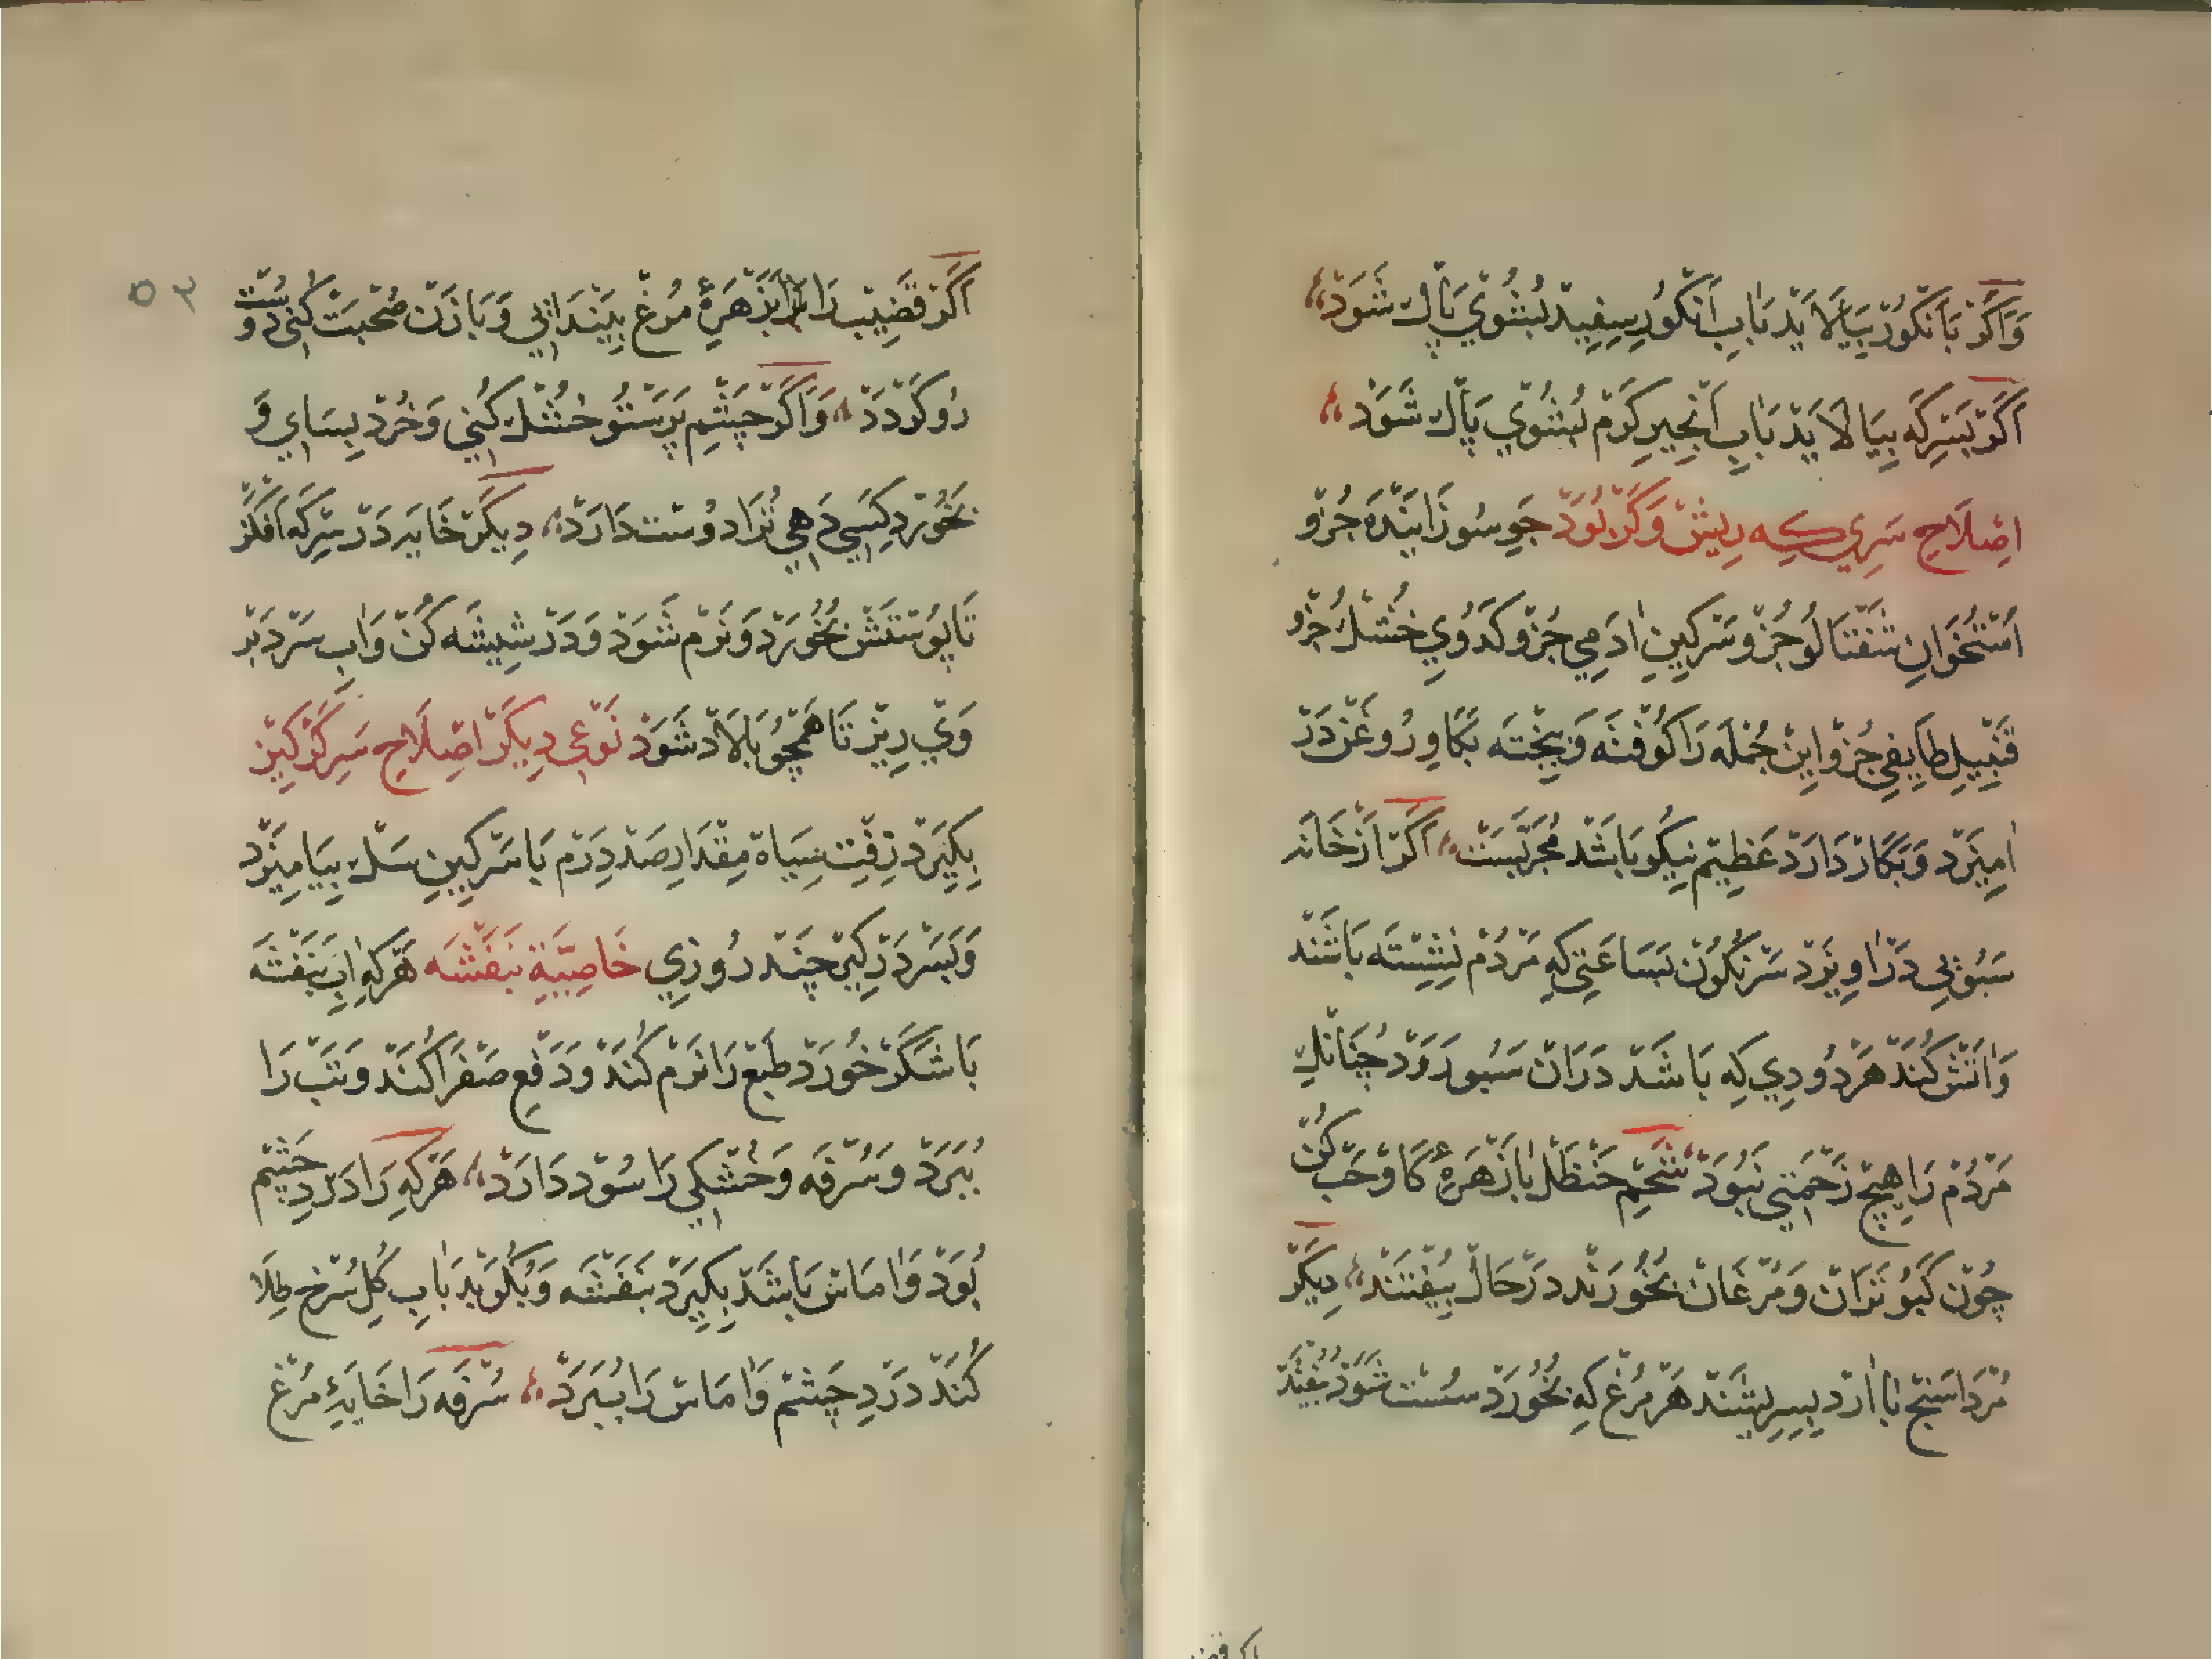 وَاَگَرْ بَانْگُورْ بِیَالَایَدْ بَآبِ اَنْگُورِ سِفِیدْ بُشُویْ پَاكْ شَوَدْ
اَگَرْ بَسِرْکَه بِیَالَایَدْ بَآبِ اَنْجِیرِ کَرْم بُشُویْ پَاكْ شَوَدْ
اِصْلَاحِ سَرِی کِه رِیشْ وَکَرْ بُوَدْ جَوِ سُوزَانِیْدَه جُزْو
اُسْتُخْوَانِ شَفْتَالُو جُزْو سَرْکِینِ آدَمِی جُزْو کَدُویِ خُشْكْ جُزْو
قَنْبِیلِ طَایِفِی جُزْو اِینْ جُمْلَه رَا کُوفْتَه وَبِیخْتَه بَکَاوِ رُوغَنْ دَرْ
آمِیزَدْ وَبَکَارْ دَارَدْ عَظِیمْ نِیکُو بَاشَدْ مُجَرَّبَسْتْ اَگَرْ اَزْ خَانَه
سَبُوْیِی دَرْآوِیزَدْ سَرْنِگُونْ بَسَاعَتِی کِه مَرْدُمْ نِشِسْتَه بَاشَنْد
وَآتَشْ کُنَنْدْ هَرْدُودِی کِه بَاشَدْ دَرَانْ سَبُو رَوَدْ چُنَانْكِ
مَرْدُمْ رَا هِیچْ زَحْمَتِی نَبُوَدْ شَحْمِ حَنْظَلْ بَازَهْرَهٔ کَاوْ حَبّ کُنْ
چُونْ کَبُوتَرَانْ وَمُرْغَانْ بُخُورَنْدْ دَرْحَالْ بِیُفْتَنْدْ دِیگَرْ
مُرْدَاسَنْجْ بَا آرْد بِسِرِیشَنْد هَرْ مُرْغْ کِه بُخُورَدْ سُسْتْ شَوَدْ بُیفْتَدْ
اَگَرْ قَضِیبْ رَا بَزَهْرَهِٔ مُرغْ بِیَنْدَایِی وَبَازَنْ صُحْبَتْ کُنِی دُوسْتْ
رُو گَرْدَدْ وَاَگَرْ چَشْمِ پَرَسْتُو خُشْكْ کُنِی وَخُرْد بِسَایِ وَ
بَخُورْدِ کَسِی دَهِی تُرَا دُوسْت دَارَدْ دِیگَرْ خَایَه دَرْ سِرْکَه اَفْکَنْ
تَا پُوسْتَشْ بُخُورَدْ وَنَرْم شَوَدْ وَدَرْ شِیشَه کُنْ وَآبِ سَرْد بَرْ
وَیْ رِیزْ تَا هَمْچُو بَلَادْ شَوَدْ نَوْعِی دِیگَرْ اِصْلَاحِ سَرِ کَرْکِینْ
بِکِیَرَدْ زِفْتِ سِیَاهْ مِقْدَارِ صَدْ دِرَمْ بَا سَرْکِینِ سَكْ بِیَامِیزَدْ
وَبَسَرْ دَرْکِیرْ چَنْد رُوزِی خَاصِیَّةِ بَنَفْشَه هَرْکِه آبِ بَنَفْشَه
بَا شَکَرْ خُورَدْ طَبْعْ رَا نَرْم کُنَدْ وَدَفْعِ صَفْرَا کُنَدْ وَتَبْ رَا
بُبَرَدْ وَسُرْفَه وَخُشْکِی رَا سُودْ دَارَدْ هَرْکِه رَا دَرْدِ چَشْم
بُوَدْ وَآمَاسْ بَاشَدْ بِکِیَرَدْ بَنَفْشَه وَبُکُوبَدْ بَآبِ کُلِ سُرْخ طِلَا
کُنَدْ دَرْدِ چَشْمْ وَآمَاسْ رَا بُبَرَدْ سُرْفَه رَا خَایَهِٔ مُرْغ